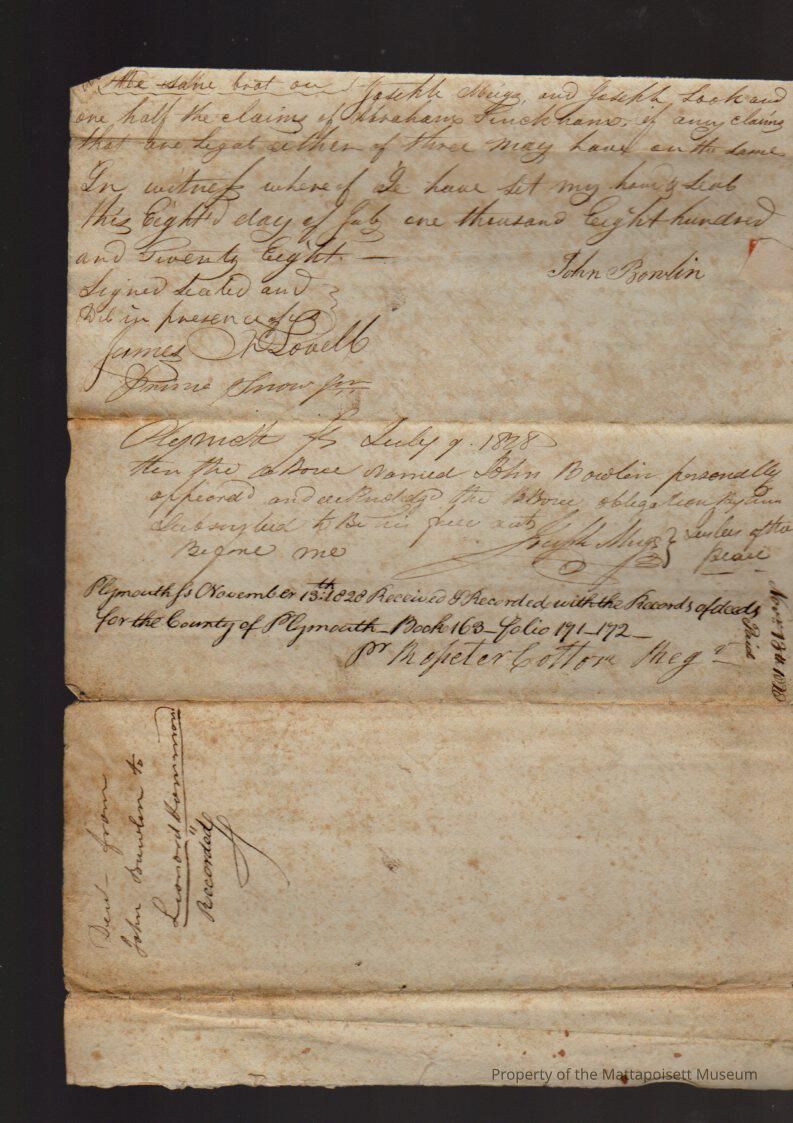 the same brot on Joseph Meigs, and Joseph Look and
one half the claims of Abraham Pinckham, if any claims
that are Legal either of three may have on the same
In witness where of I have set my hand & seal
this Eight'd day of July one thousand Eight hundred
and Twenty Eight —
John Bowlin
Signed Sealed and
Del in presence of us
James N Lovell
Prince Snow Jr
Plymoth ss July 9. 1828
then the above Named John Bowlin personally
appeord and acknledge the above obligation by him
Subscribed to Be his free act
Before me
Joseph Meigs Justes of the
peace
Plymouth ss November 13th 1828 Received & Recorded with the Records of deeds
for the County of Plymouth — Book 163 — folio 171 — 172 —
pr Rosseter Cotton Regr
Novr 13th 1828
Paid
Deed — from
John Bowlin to
Leonard Hammond
Recorded
Property of the Mattapoisett Museum